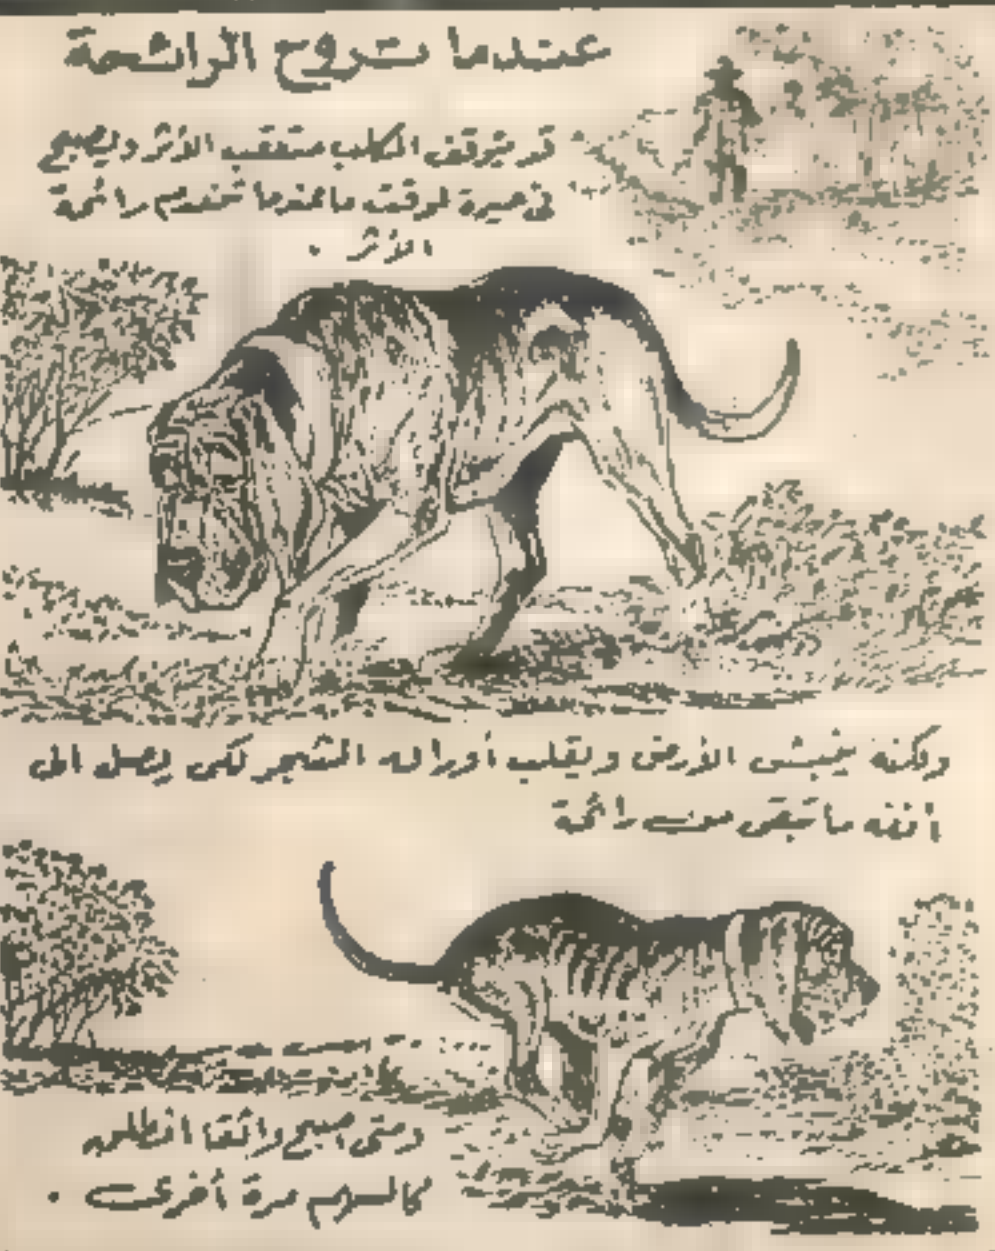 عندما تروح الرائحة
قد يتوقف الكلب متعقب الأثر ويصبح
في حيرة لوقت ما عندما تنعدم رائحة
الأثر .
ولكنه ينبش الأرض ويقلب أوراق الشجر لكى يصل الى
أنفه ما تبقى من رائحة
ومتى أصبح واثقا انطلق
كالسهم مرة أخرى .